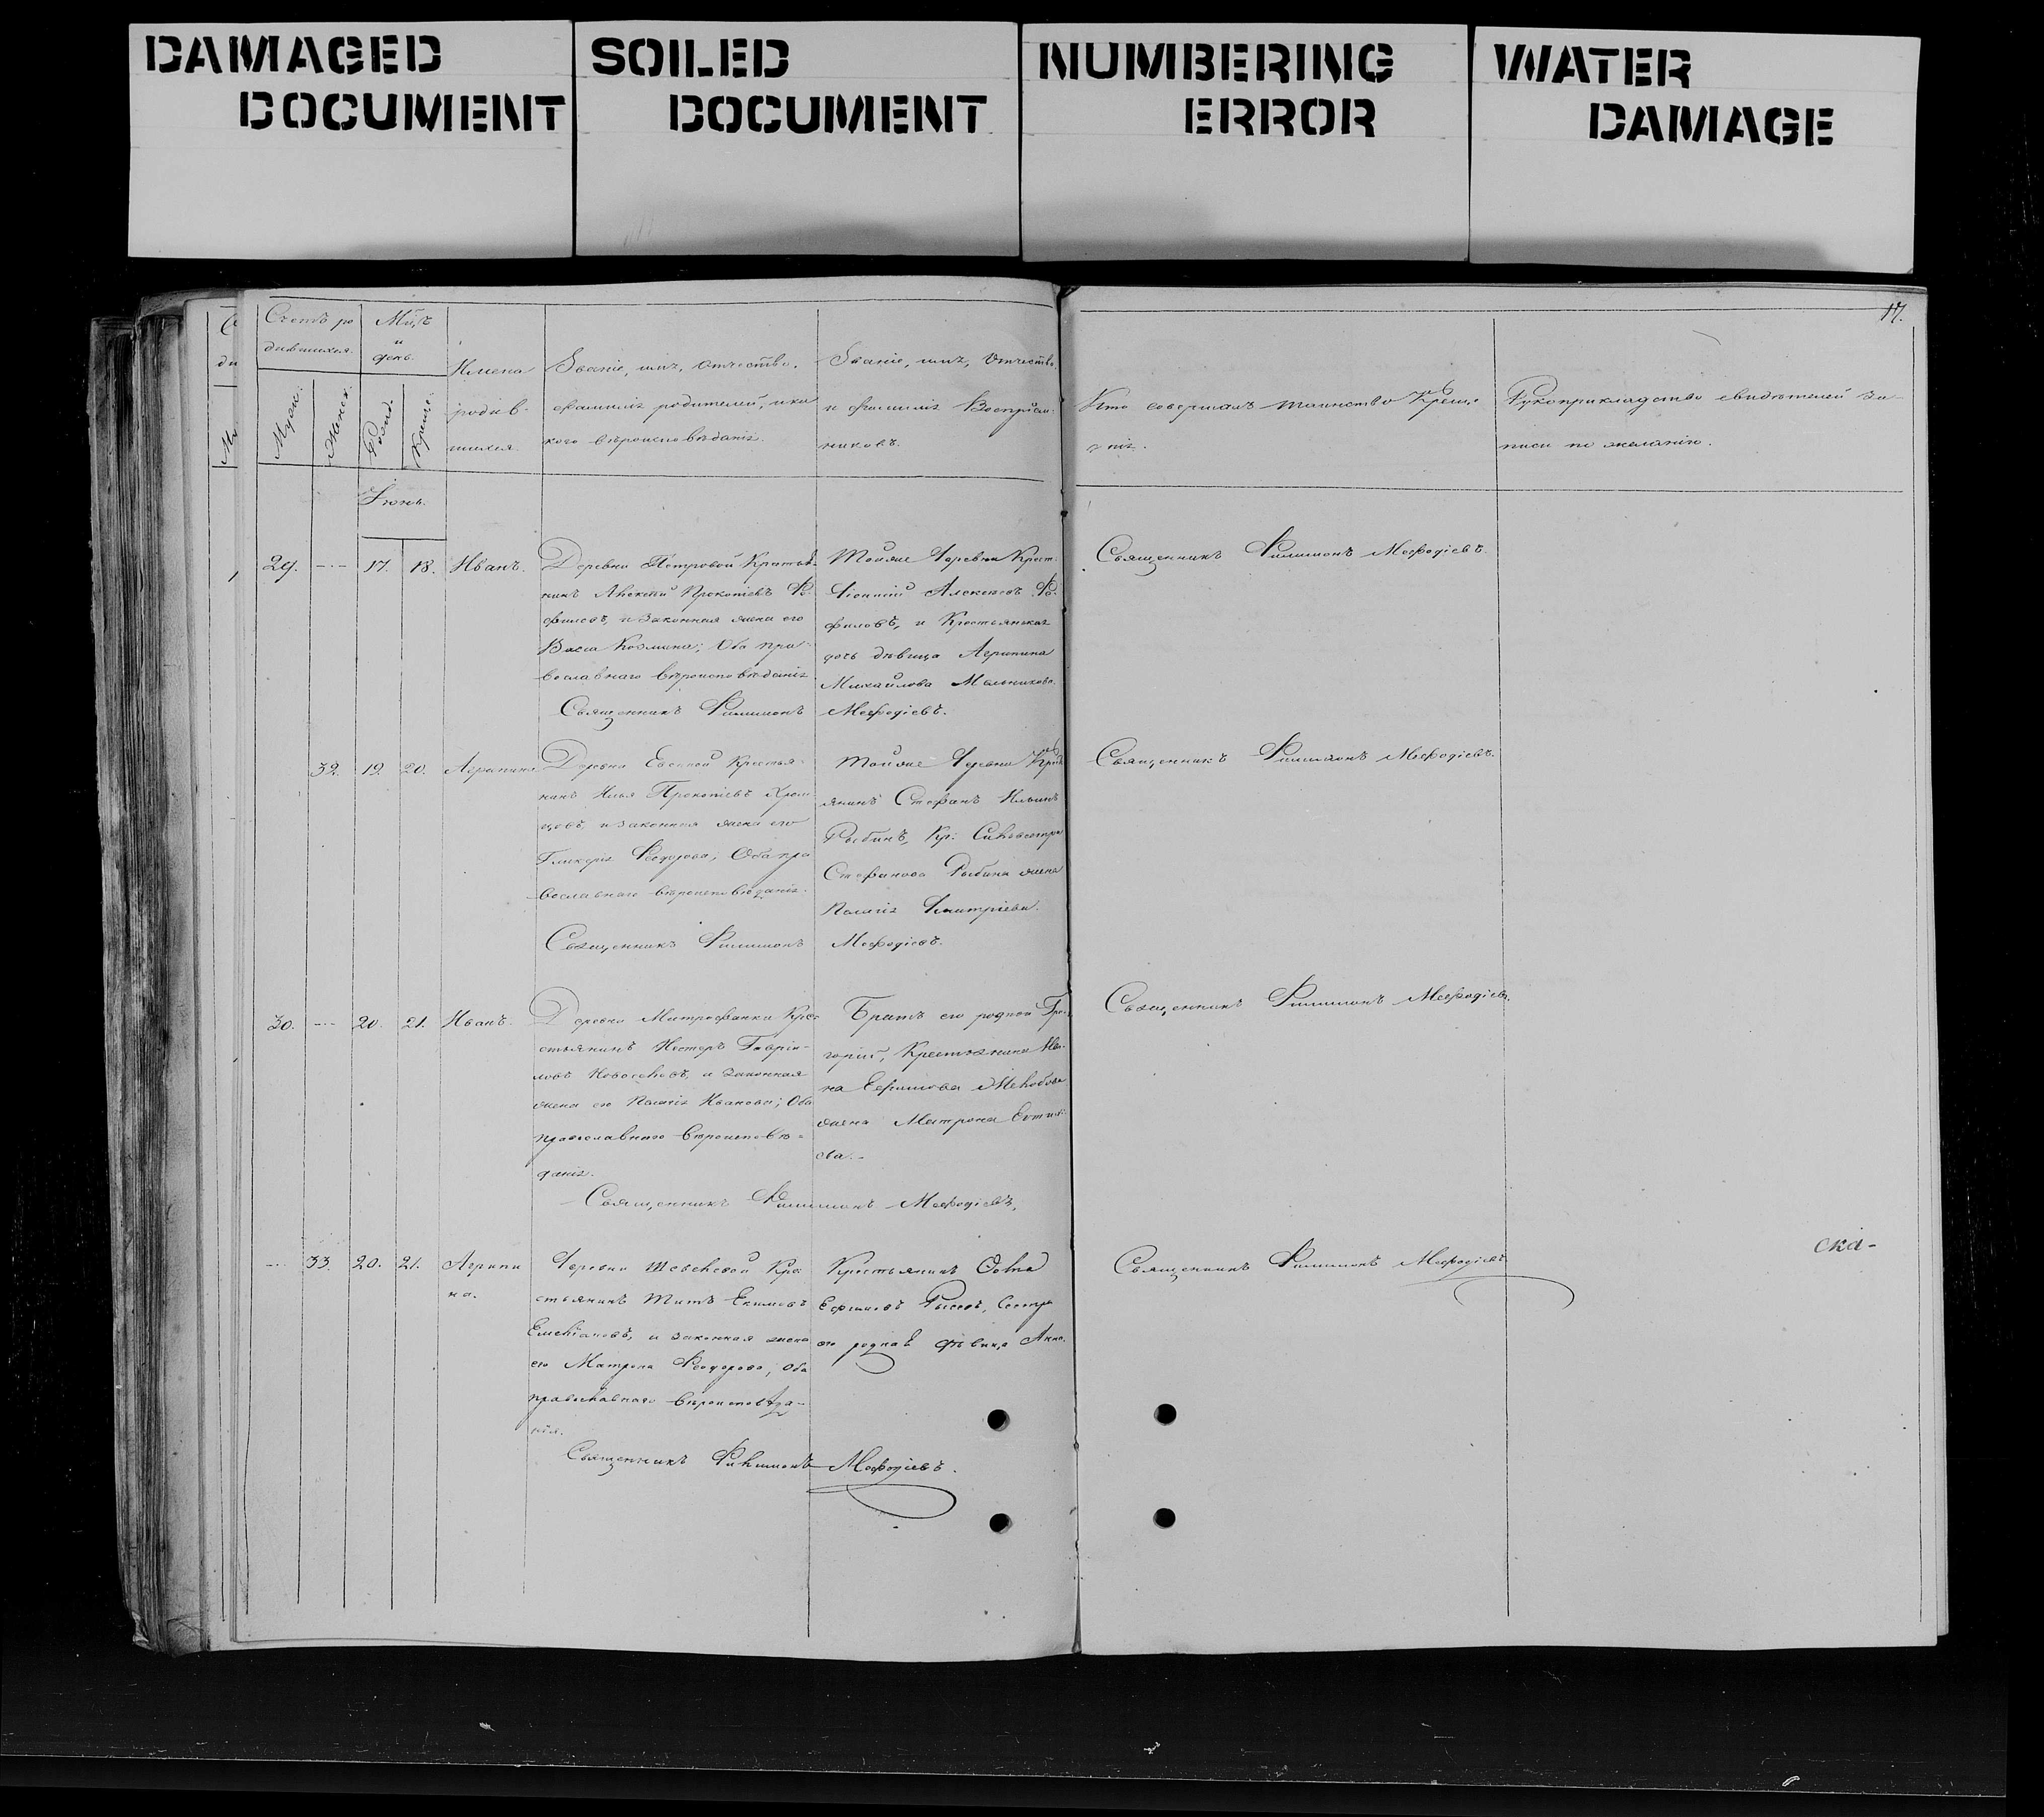 DAMAGED
DOCUMENT
SOILED
DOCUMENT
NUMBERING
ERROR
WATER
DAMAGE
17.
Счетъ ро
дившихся.
Мужск.
Женск.
Мцъ
и
день.
Рожд.
Крещ.
Имена
родив-
шихся.
Званіе, имя, отчество,
фамилія родителей, и ка
кого вѣроисповѣданія.
Званіе, имя, Отчество
и фамилія Воспріем-
никовъ.
Кто совершалъ таинство Креще
нія.
Рукоприкладство свидѣтелей за-
писи по желанію.
Іюнь.
29. --- 17. 18. Иванъ.
Деревни Петровой Крестья
нинъ Алексѣй Прокопіевъ
и законная жена его
Васса Козмина; Оба пра-
вославнаго вѣроисповѣданія
Священникъ Филимонъ Меѳодіевъ.
Тойже деревни Крест.
Діонисій Алексѣевъ
и Крестьянская
дочь дѣвица Агрипина
Михайлова Мельникова.
Священникъ Филимонъ Меѳодіевъ.
32. 19. 20. Агрипина
Деревни Крестья-
нинъ Илья Прокопіевъ
и законная жена его
Гликерія Ѳеодорова; Оба пра
вославнаго вѣроисповѣданія.
Священникъ Филимонъ Меѳодіевъ.
Тойже Деревни Крест
янинъ Стефанъ Ильинъ
Рыбинъ, Кр. Сильвестра
Стефанова Рыбина жена
Палагія Димитріева.
Священникъ Филимонъ Меѳодіевъ.
30. --- 20. 21. Иванъ.
Деревни Митрофанки Кре-
стьянинъ Несторъ Гаврiи-
ловъ Новоселовъ, и законная
жена его Палагія Иванова; Оба
православнаго вѣроисповѣ-
данія.
Священникъ Филимонъ Меѳодіевъ,
Братъ его родной Гри-
горій, Крестьянина Ива-
на Ефимова
жена Матрона
ева.-
Священникъ Филимонъ Меѳодіевъ.
--- 33. 20. 21. Агрипи
на.
Деревни Кре-
стьянинъ Титъ Екимовъ
Емеліановъ, и законная жена
его Матрона Ѳеодорова; Оба
православнаго вѣроисповѣда-
нія.
Священникъ Филимонъ Меѳодіевъ.
Крестьянинъ
Ефимовъ сестра
его родная дѣвица Анна.
Священникъ Филимонъ Меѳодіевъ
ска-